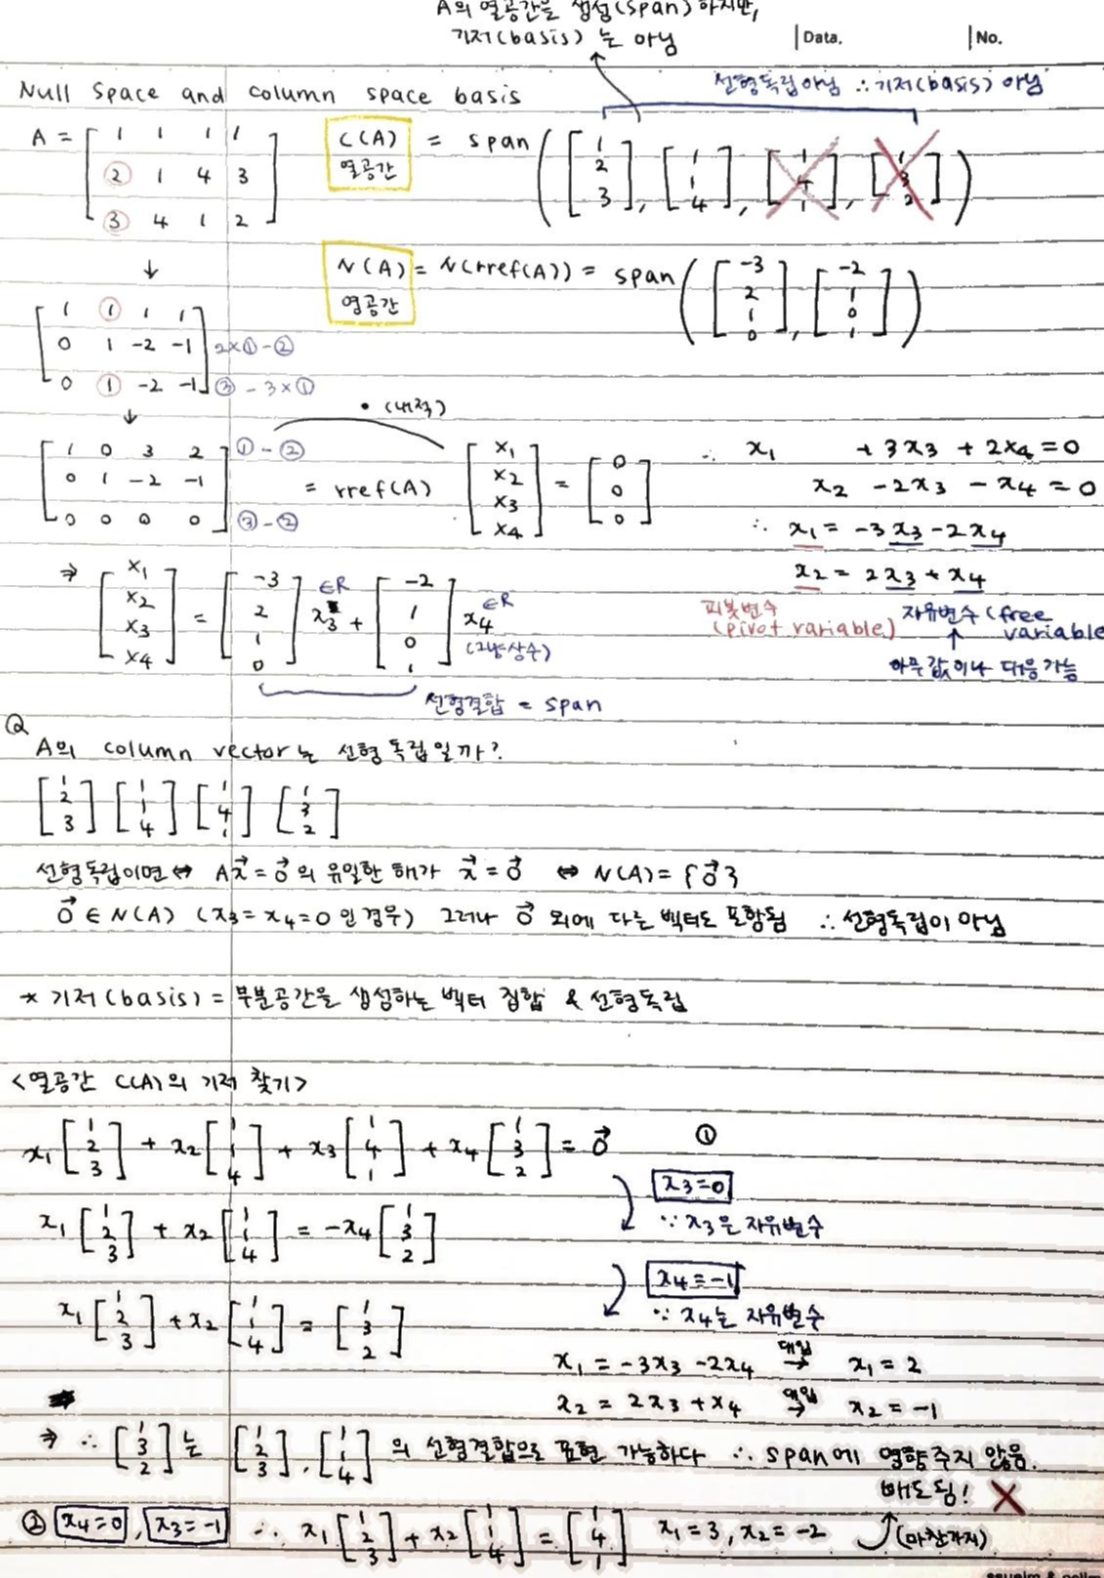 A의 열공간을 생성(span)하지만,
기저(basis)는 아님
Data.
No.
선형독립아님 ∴기저(basis) 아님
Null Space and column space basis
A = [1 1 1 1; ② 1 4 3; ③ 4 1 2]
C(A) = span([1 2 3], [1 1 4], [1 4 1], [1 3 2])
열공간
↓
N(A) = N(rref(A)) = span([-3 2 1 0], [-2 1 0 1])
영공간
[1 ① 1 1; 0 1 -2 -1; 0 ① -2 -1]
2×①-②
③-3×①
↓
• (내적)
[1 0 3 2; 0 1 -2 -1; 0 0 0 0] = rref(A) [x1 x2 x3 x4] = [0 0 0]
①-②
③-②
∴ x1 + 3x3 + 2x4 = 0
x2 - 2x3 - x4 = 0
∴ x1 = -3x3 - 2x4
x2 = 2x3 + x4
피봇변수
(pivot variable)
자유변수(free
variable
↑
아무 값이나 대응 가능
⇒ [x1 x2 x3 x4] = [-3 2 1 0] x3 + [-2 1 0 1] x4
∈R
∈R
(그냥 상수)
선형결합 = span
Q
A의 column vector는 선형 독립일까?
[1 2 3] [1 1 4] [1 4 1] [1 3 2]
선형독립이면 ⇔ Ax⃗ = 0⃗ 의 유일한 해가 x⃗ = 0⃗ ⇔ N(A) = {0⃗}
0⃗ ∈ N(A) (x3 = x4 = 0 인 경우) 그러나 0⃗ 외에 다른 벡터도 포함됨 ∴ 선형독립이 아님
* 기저(basis) = 부분공간을 생성하는 벡터 집합 & 선형독립
<열공간 C(A)의 기저 찾기>
x1 [1 2 3] + x2 [1 1 4] + x3 [1 4 1] + x4 [1 3 2] = 0⃗ ①
x3=0
∵ x3은 자유변수
x1 [1 2 3] + x2 [1 1 4] = -x4 [1 3 2]
x4=-1
∵ x4는 자유변수
x1 [1 2 3] + x2 [1 1 4] = [1 3 2]
x1 = -3x3 - 2x4 대입→ x1 = 2
x2 = 2x3 + x4 대입→ x2 = -1
⇒ ∴ [1 3 2] 는 [1 2 3], [1 1 4] 의 선형결합으로 표현 가능하다 ∴ span에 영향주지 않음.
배도됨! X
② x4=0, x3=-1 ∴ x1 [1 2 3] + x2 [1 1 4] = [1 4 1] x1 = 3, x2 = -2 (마찬가지)